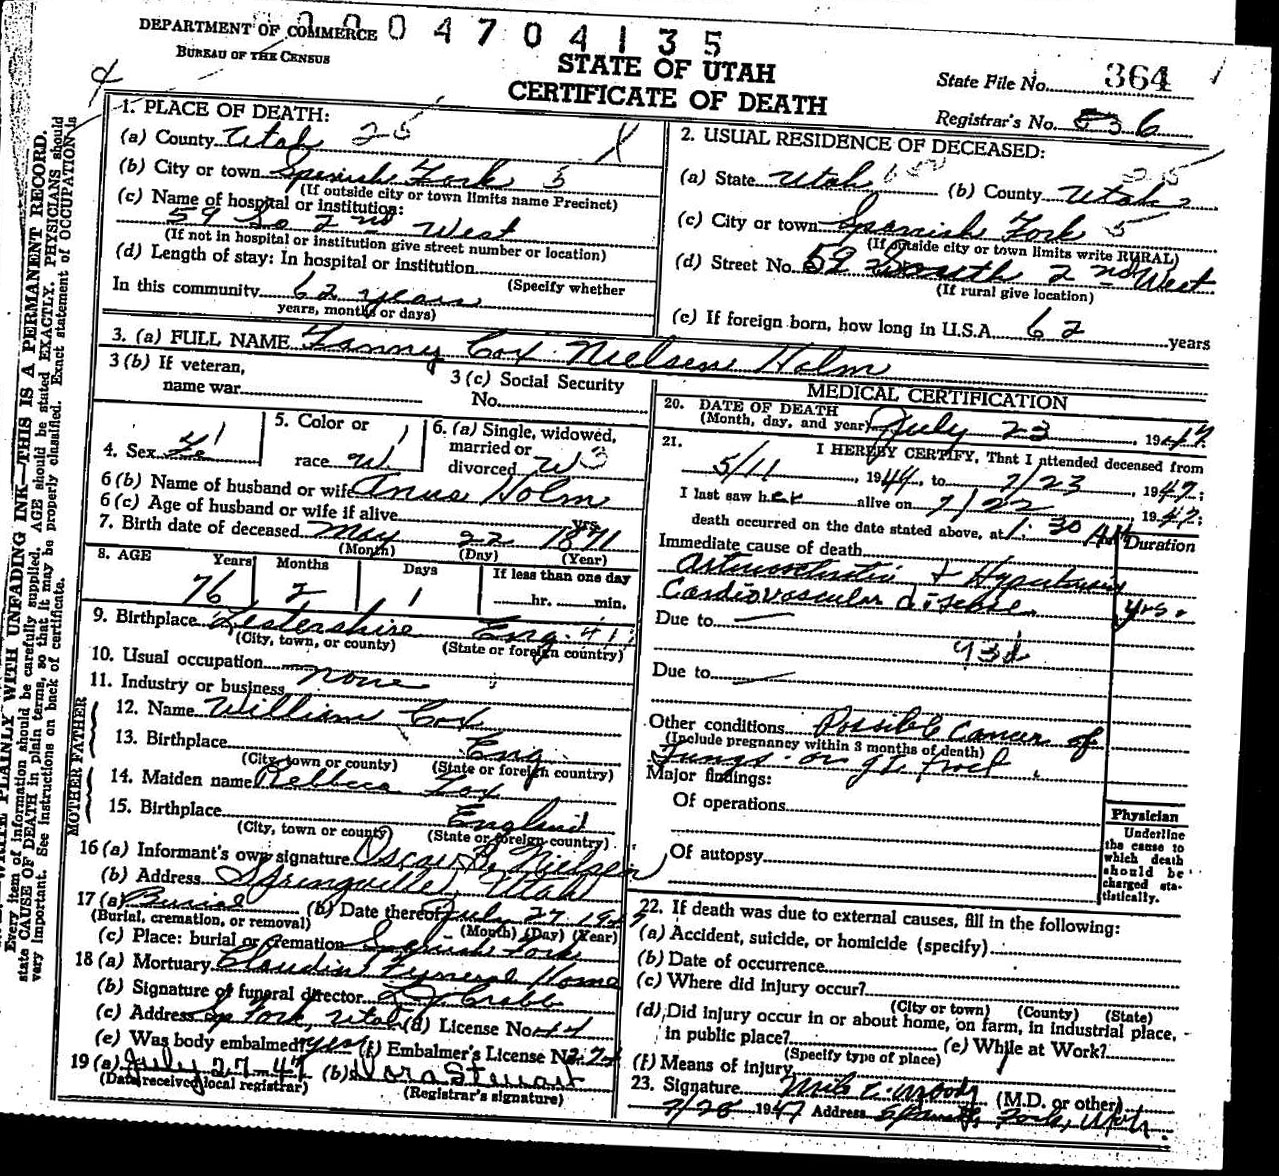 DEPARTMENT OF COMMERCE
BUREAU OF THE CENSUS
0004704135
STATE OF UTAH
CERTIFICATE OF DEATH
State File No. 364
Registrar's No. 536
WRITE PLAINLY WITH UNFADING INK—THIS IS A PERMANENT RECORD.
Every item of information should be carefully supplied. AGE should be stated EXACTLY. PHYSICIANS should
state CAUSE OF DEATH in plain terms, so that it may be properly classified. Exact statement of OCCUPATION is
very important. See instructions on back of certificate.
1. PLACE OF DEATH:
(a) County Utah 25
(b) City or town Spanish Fork 5
(If outside city or town limits name Precinct)
(c) Name of hospital or institution:
59 So 2nd West
(If not in hospital or institution give street number or location)
(d) Length of stay: In hospital or institution
(Specify whether
In this community 62 years
years, months or days)
2. USUAL RESIDENCE OF DECEASED:
(a) State Utah (b) County Utah 25
(c) City or town Spanish Fork 5
(If outside city or town limits write RURAL)
(d) Street No. 59 South 2nd West
(If rural give location)
(e) If foreign born, how long in U.S.A. 62 years
3. (a) FULL NAME Fanny Cox Nielsen Holm
3 (b) If veteran,
name war
3 (c) Social Security
No.
4. Sex Fe 1
5. Color or
race W. 1
6. (a) Single, widowed,
married or
divorced W 3
6 (b) Name of husband or wife Holm
6 (c) Age of husband or wife if alive yrs.
7. Birth date of deceased May 22 1871
(Month) (Day) (Year)
8. AGE Years Months Days If less than one day
76 2 1 hr. min.
9. Birthplace Lestershire Eng. 411
(City, town, or county) (State or foreign country)
10. Usual occupation none
11. Industry or business
FATHER
12. Name William Cox
13. Birthplace Eng
(City, town or county) (State or foreign country)
MOTHER
14. Maiden name Rebbeca Fox
15. Birthplace England
(City, town or county) (State or foreign country)
16 (a) Informant's own signature Oscar Nielsen
(b) Address Springville, Utah
17 (a) Burial (b) Date thereof July 27 1947
(Burial, cremation, or removal) (Month) (Day) (Year)
(c) Place: burial or cremation Spanish Fork
18 (a) Mortuary Claudin Funeral Home
(b) Signature of funeral director
(c) Address Sp Fork, Utah (d) License No. 44
(e) Was body embalmed? yes (f) Embalmer's License No.
19 (a) July 27-47 (b) Nora Stewart
(Date received local registrar) (Registrar's signature)
MEDICAL CERTIFICATION
20. DATE OF DEATH
(Month, day, and year) July 23, 1947.
21. I HEREBY CERTIFY, That I attended deceased from
5/11, 1944, to 7/23, 1947;
I last saw her alive on 7/22 1947;
death occurred on the date stated above, at 1:30 AM
Duration
Immediate cause of death
Arteriosclerotic + Hypertensive
Cardiovascular disease yrs.
Due to —
93d
Due to —
Other conditions Possible Cancer of
(Include pregnancy within 3 months of death)
Lungs or
Major findings:
Of operations
Of autopsy
Physician
Underline
the cause to
which death
should be
charged sta-
tistically.
22. If death was due to external causes, fill in the following:
(a) Accident, suicide, or homicide (specify)
(b) Date of occurrence
(c) Where did injury occur?
(City or town) (County) (State)
(d) Did injury occur in or about home, on farm, in industrial place,
in public place? (e) While at Work?
(Specify type of place)
(f) Means of injury
23. Signature Moody (M.D. or other)
7/28 1947 Address Spanish Fork, Utah.